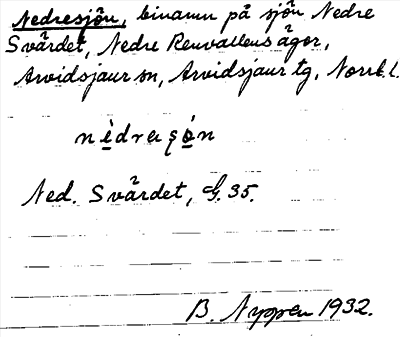 Nedresjön, binamn på sjön Nedre
Svärdet, Nedre Renvallens ägor,
Arvidsjaur sn, Arvidsjaur tg, Norrb. l.
Ned. Svärdet, G. 35.
B. Nygren 1932.